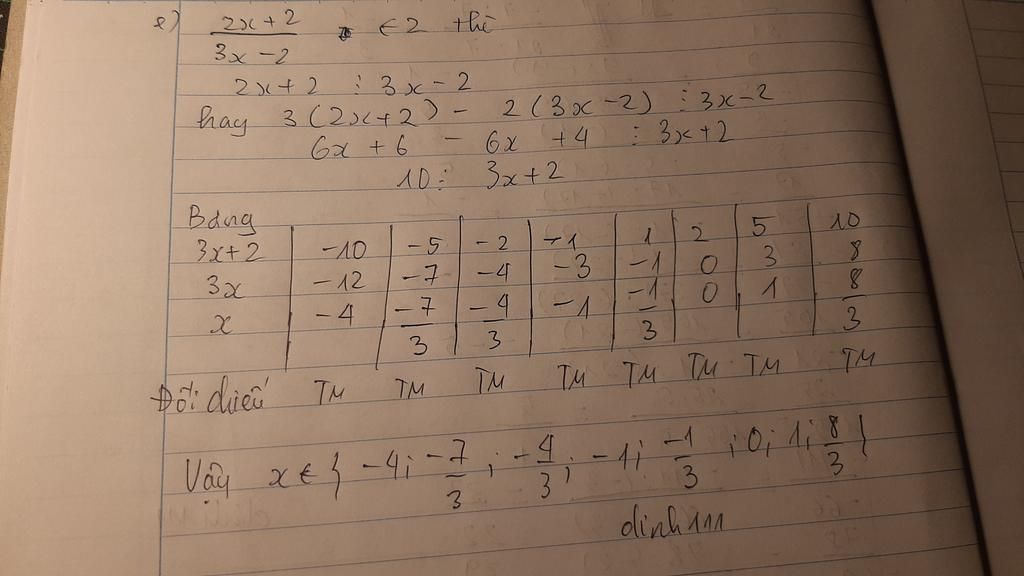 e) (2x+2)/(3x-2) ∈ 2 thì
2x+2 ⋮ 3x-2
hay 3(2x+2) - 2(3x-2) ⋮ 3x-2
6x + 6 - 6x + 4 ⋮ 3x+2
10 ⋮ 3x+2
Bảng
3x+2 | -10 | -5 | -2 | -1 | 1 | 2 | 5 | 10
3x | -12 | -7 | -4 | -3 | -1 | 0 | 3 | 8
x | -4 | -7/3 | -4/3 | -1 | -1/3 | 0 | 1 | 8/3
Đối chiếu TM TM TM TM TM TM TM TM
Vậy x ∈ { -4; -7/3; -4/3; -1; -1/3; 0; 1; 8/3 }
dinh111